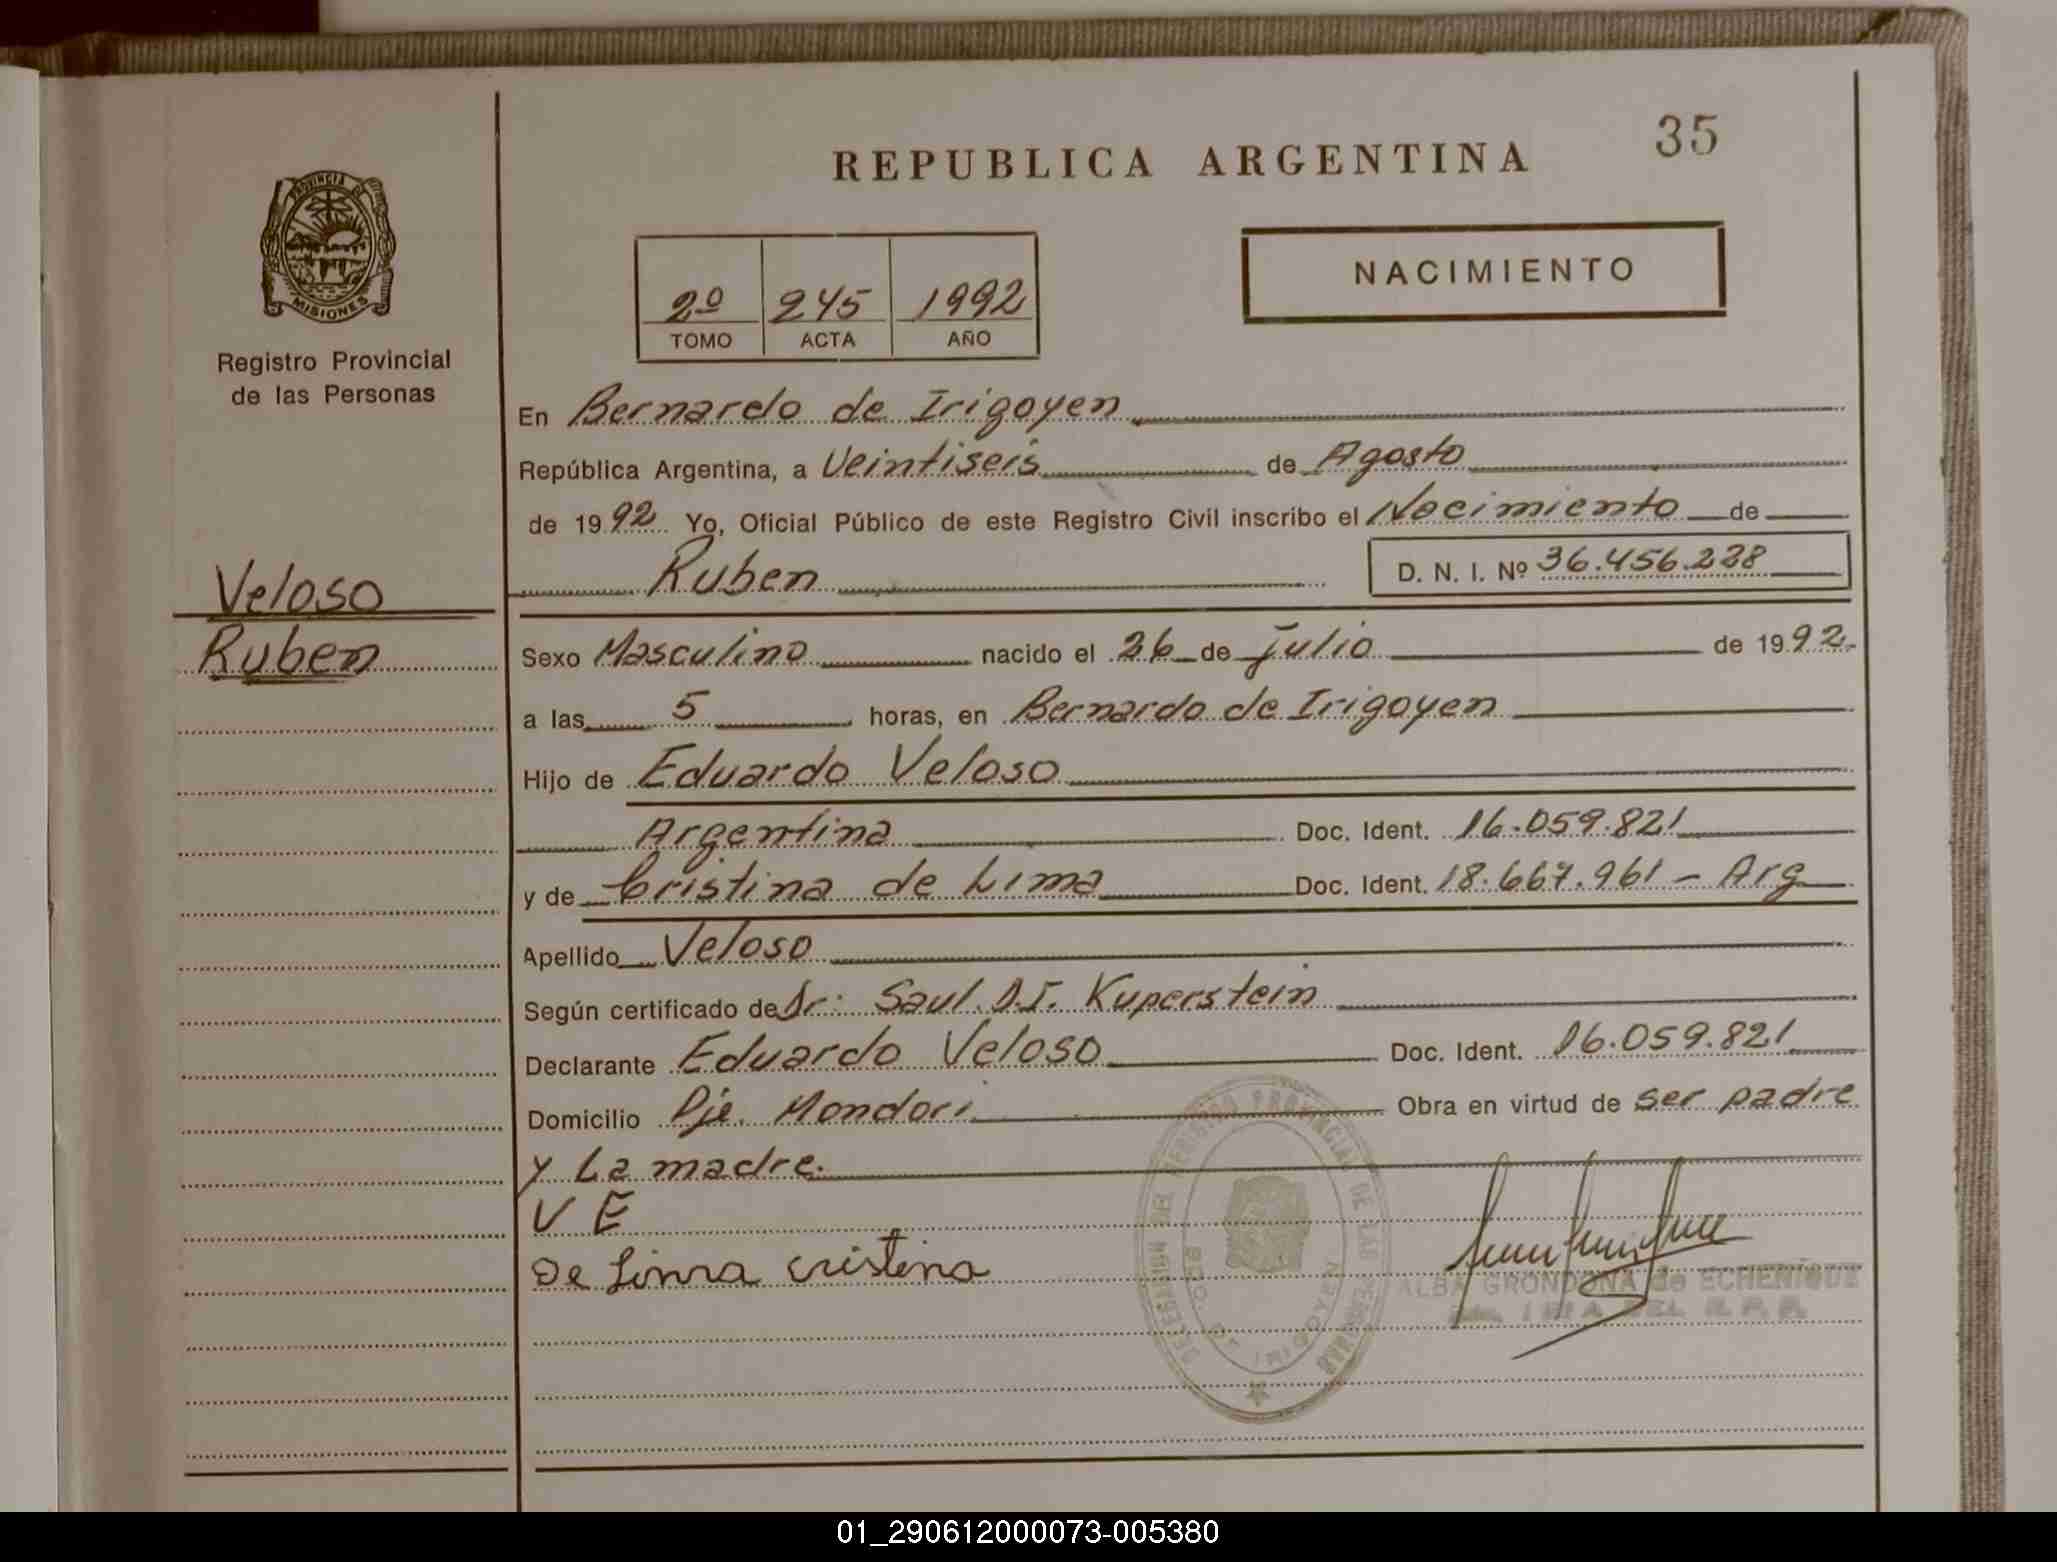 35
REPUBLICA ARGENTINA
PROVINCIA DE
MISIONES
Registro Provincial
de las Personas
NACIMIENTO
2º 245 1992
TOMO ACTA AÑO
En Bernardo de Irigoyen
República Argentina, a Veintiseis de Agosto
de 1992 Yo, Oficial Público de este Registro Civil inscribo el Nacimiento de
Ruben D. N. I. Nº 36.456.228
Veloso
Ruben
Sexo Masculino nacido el 26 de julio de 1992.
a las 5 horas, en Bernardo de Irigoyen
Hijo de Eduardo Veloso
Argentina Doc. Ident. 16.059.821
y de Cristina de Lima Doc. Ident. 18.667.961 - Arg
Apellido Veloso
Según certificado de Dr: Saul. D.I. Kuperstein
Declarante Eduardo Veloso Doc. Ident. 16.059.821
Domicilio Pje. Mondori Obra en virtud de ser padre
y La madre.
V E
De Lima cristina
DELEGACION DEL REGISTRO PROVINCIAL DE LAS PERSONAS
BDO. DE IRIGOYEN
ALBA GRONDONA de ECHENIQUE
R. P. P.
01_290612000073-005380